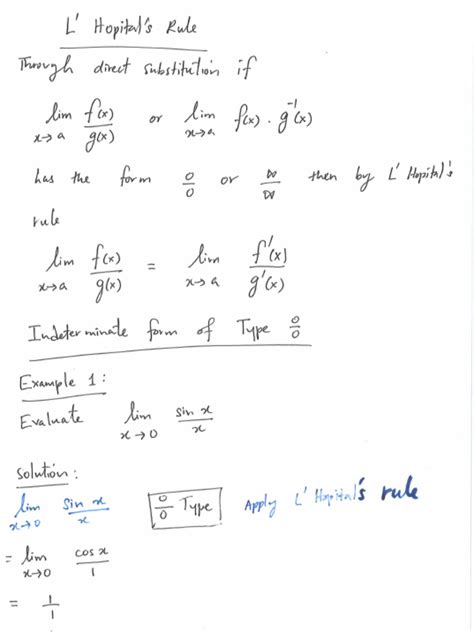 L' Hopital's Rule
Through direct substitution if
lim x→a f(x)/g(x) or lim x→a f(x) · g⁻¹(x)
has the form 0/0 or ∞/∞ then by L' Hopital's
rule
lim x→a f(x)/g(x) = lim x→a f'(x)/g'(x)
Indeterminate form of Type 0/0
Example 1:
Evaluate lim x→0 sin x/x
Solution:
lim x→0 sin x/x 0/0 Type Apply L' Hopital's rule
= lim x→0 cos x/1
= 1/1